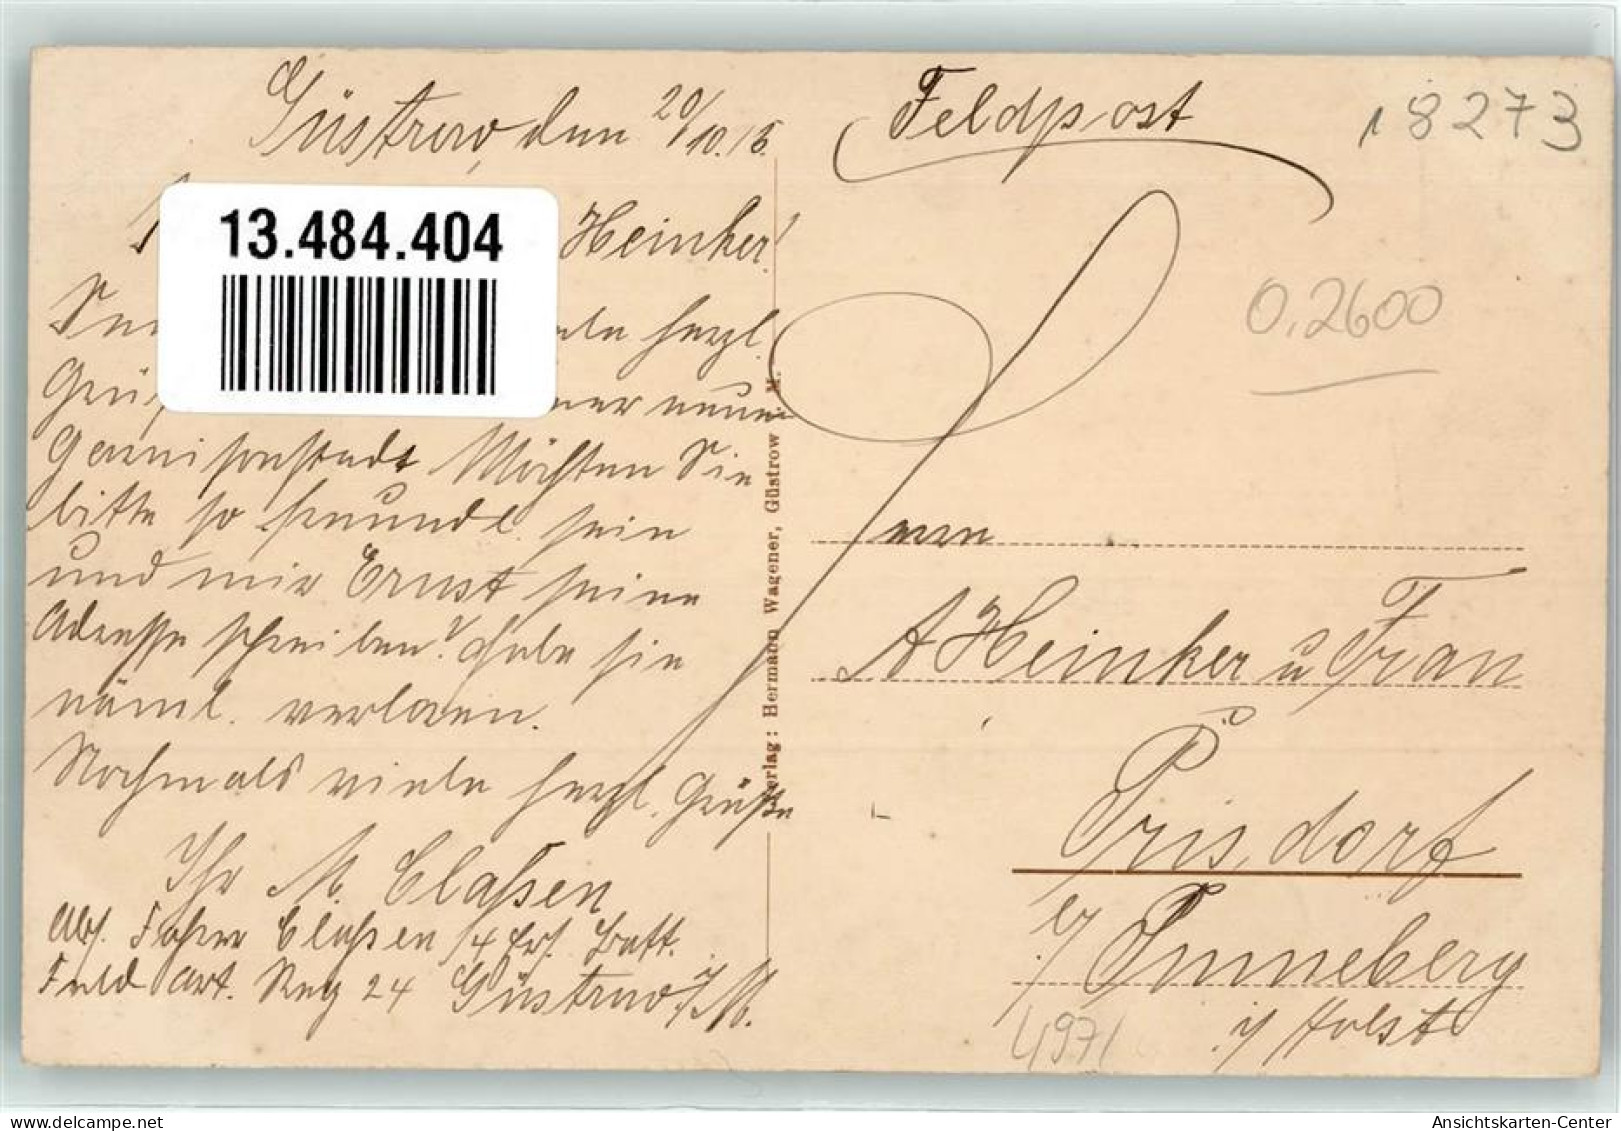 Güstrow, den 20/10.15.
Heinker!
Sen viele herzl.
Grüße einer neuen
Garnisonstadt Möchten Sie
bitte so freundl. sein
und mir Ernst seine
Adresse schreiben? habe sie
näml. verloren.
Nochmals viele herzl. Grüße
Ihr M. Claßen
Abs. Fahrer Claßen /4 Ers. Batt.
Feld Art. Reg 24 Güstrow i/M.
13.484.404
Verlag: Hermann Wagener, Güstrow i. M.
Feldpost
18273
0,2600
Herrn
A Heinker u Frau
Prisdorf
b/ Pinneberg
i/ Holst
4971
Ansichtskarten-Center